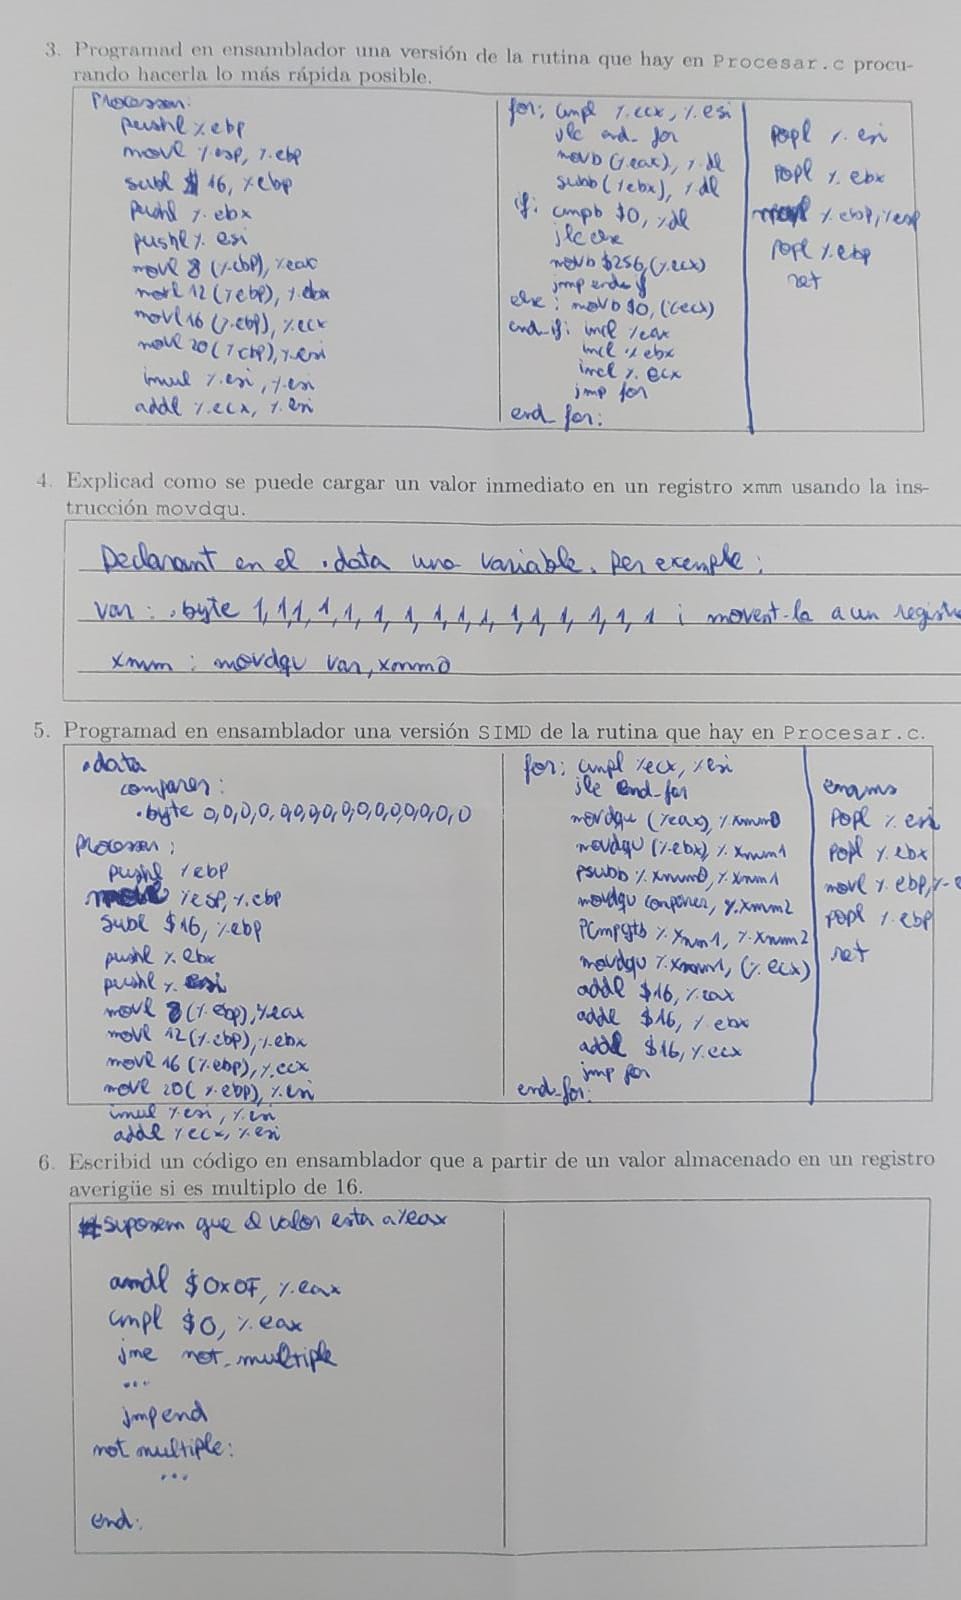 3. Programad en ensamblador una versión de la rutina que hay en Procesar.c procu-
rando hacerla lo más rápida posible.
Processar:
pushl %ebp
movl %esp, %ebp
subl $16, %ebp
pushl %ebx
pushl %esi
movl 8(%ebp), %eax
movl 12(%ebp), %ebx
movl 16(%ebp), %ecx
movl 20(%ebp), %esi
imul %esi, %esi
addl %ecx, %esi
for: cmpl %ecx, %esi
jle end_for
movb (%eax), %dl
subb (%ebx), %dl
if: cmpb $0, %dl
jle else
movb $256, (%ecx)
jmp end_if
else: movb $0, (%ecx)
end_if: incl %eax
incl %ebx
incl %ecx
jmp for
end_for:
popl %esi
popl %ebx
movl %ebp, %esp
popl %ebp
ret
4. Explicad como se puede cargar un valor inmediato en un registro xmm usando la ins-
trucción movdqu.
Declarant en el .data una variable. Per exemple:
var: .byte 1,1,1,1,1,1,1,1,1,1,1,1,1,1,1,1 i movent-la a un registre
xmm: movdqu var, xmm0
5. Programad en ensamblador una versión SIMD de la rutina que hay en Procesar.c.
.data
comparer:
.byte 0,0,0,0,0,0,0,0,0,0,0,0,0,0,0,0
Processar:
pushl %ebp
movl %esp, %ebp
subl $16, %ebp
pushl %ebx
pushl %esi
movl 8(%ebp), %eax
movl 12(%ebp), %ebx
movl 16(%ebp), %ecx
movl 20(%ebp), %esi
imul %esi, %esi
addl %ecx, %esi
for: cmpl %ecx, %esi
jle end_for
movdqu (%eax), %xmm0
movdqu (%ebx), %xmm1
psubb %xmm0, %xmm1
movdqu comparer, %xmm2
pcmpgtb %xmm1, %xmm2
movdqu %xmm1, (%ecx)
addl $16, %eax
addl $16, %ebx
addl $16, %ecx
jmp for
end_for:
emms
popl %esi
popl %ebx
movl %ebp, %e
popl %ebp
ret
6. Escribid un código en ensamblador que a partir de un valor almacenado en un registro
averigüe si es multiplo de 16.
# suposem que el valor esta a %eax
andl $0x0F, %eax
cmpl $0, %eax
jne not_multiple
...
jmp end
not multiple:
...
end: